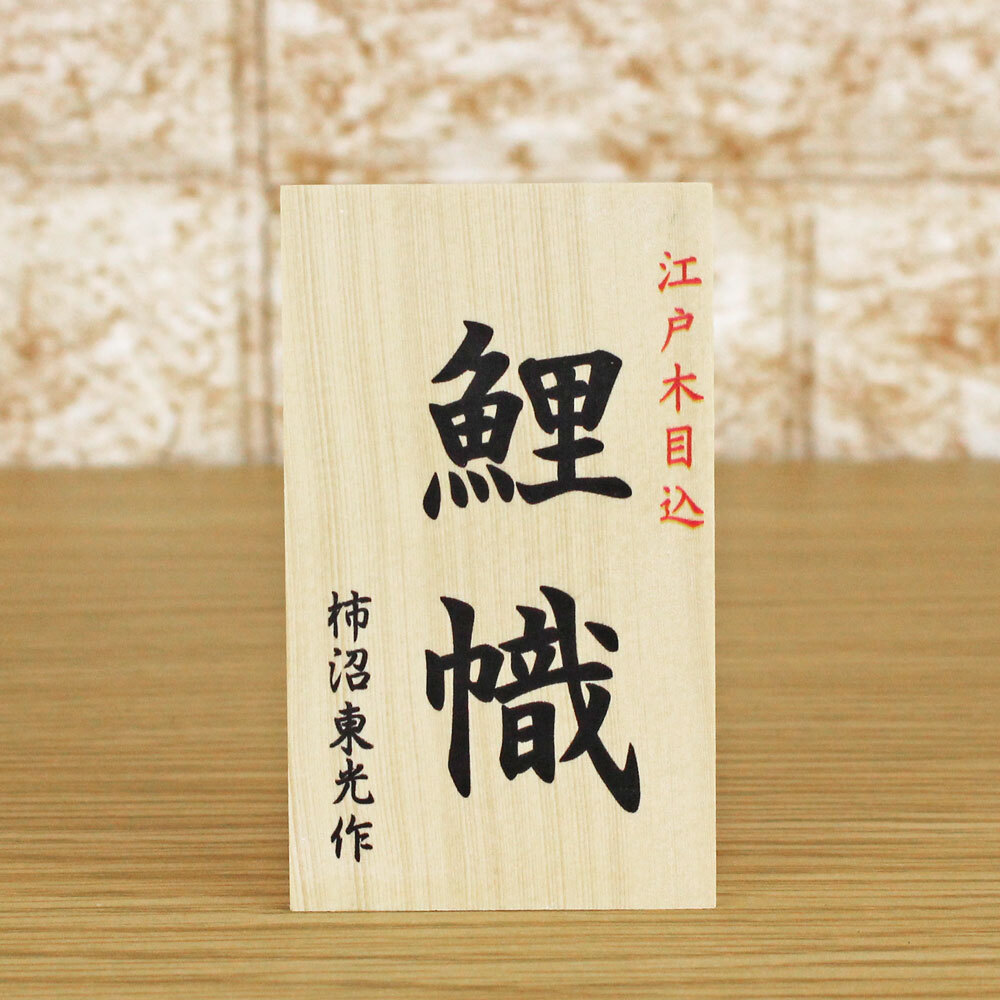 江戸木目込
鯉幟
柿沼東光作